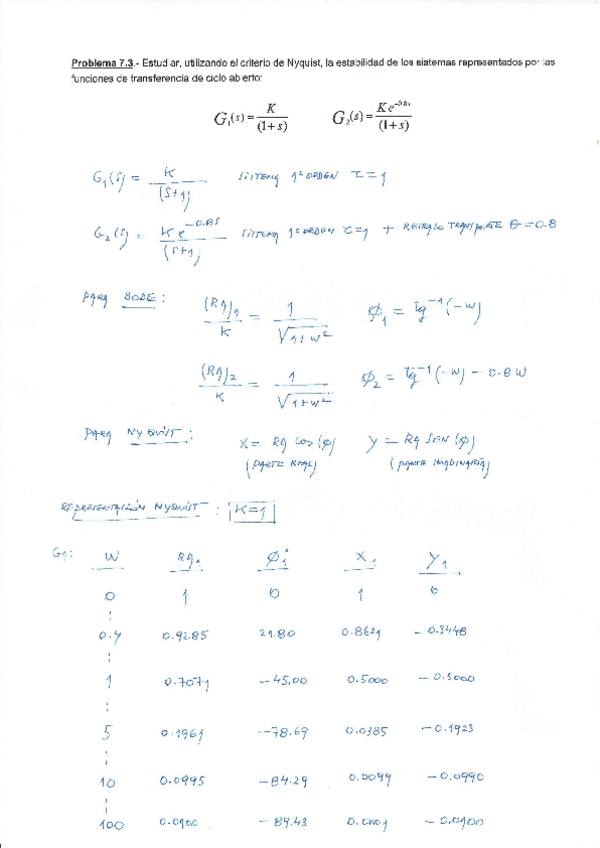 Problema 7.3.- Estudiar, utilizando el criterio de Nyquist, la estabilidad de los sistemas representados por las
funciones de transferencia de ciclo abierto:
G₁(s) = K / (1+s) G₂(s) = K e^-0.8s / (1+s)
G₁(s) = K / (s+1) SISTEMA 1ᵉʳ ORDEN τ = 1
G₂(s) = K e^-0.8s / (s+1) SISTEMA 1ᵉʳ ORDEN τ=1 + RETRASO TRANSPORTE θ = 0.8
PARA BODE: (RA)₁ / K = 1 / √(1+w²) φ₁ = tg⁻¹(-w)
(RA)₂ / K = 1 / √(1+w²) φ₂ = tg⁻¹(-w) - 0.8 w
PARA NYQUIST: X = RA cos(φ) Y = RA SEN(φ)
(PARTE REAL) (PARTE IMAGINARIA)
REPRESENTACIÓN NYQUIST: K=1
G₁: W RA₁ φ₁° X₁ Y₁
0 1 0 1 0
0.4 0.9285 21.80 0.8621 -0.3448
1 0.7071 -45.00 0.5000 -0.5000
5 0.1961 -78.69 0.0385 -0.1923
10 0.0995 -84.29 0.0099 -0.0990
100 0.0100 -89.43 0.0001 -0.0100